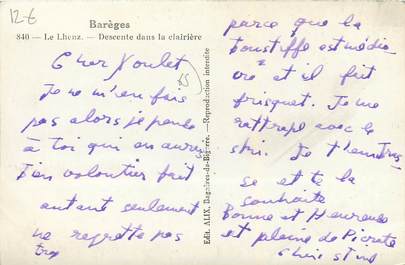 12€
Barèges
840 — Le Lhenz. — Descente dans la clairière
Cher Noulet
Je ne m'en fais
pas alors je pense
à toi qui en aurais
bien volontier fait
autant seulement
ne regrette pas
trop
Edit. ALIX, Bagnères-de-Bigorre. — Reproduction interdite
parce que la
boustiffe est médio
cre et il fait
frisquet. Je me
rattrape avec le
ski. Je
se et te la
souhaite
Bonne et Heureuse
et pleine de